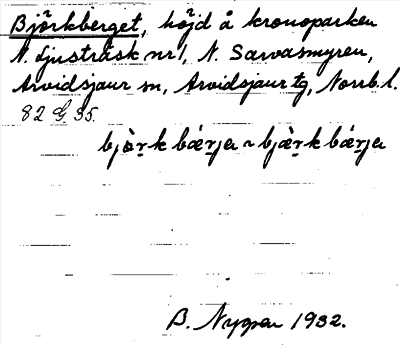 Björkberget, höjd å kronoparken
N. Ljusträsk nr 1, N. Sarvasmyren,
Arvidsjaur sn, Arvidsjaur tg, Norrb. l.
82 G. 35.
bjàr̥k bǽr̥ja ~ bjàr̥k bǽr̥ja
B. Nygren 1932.